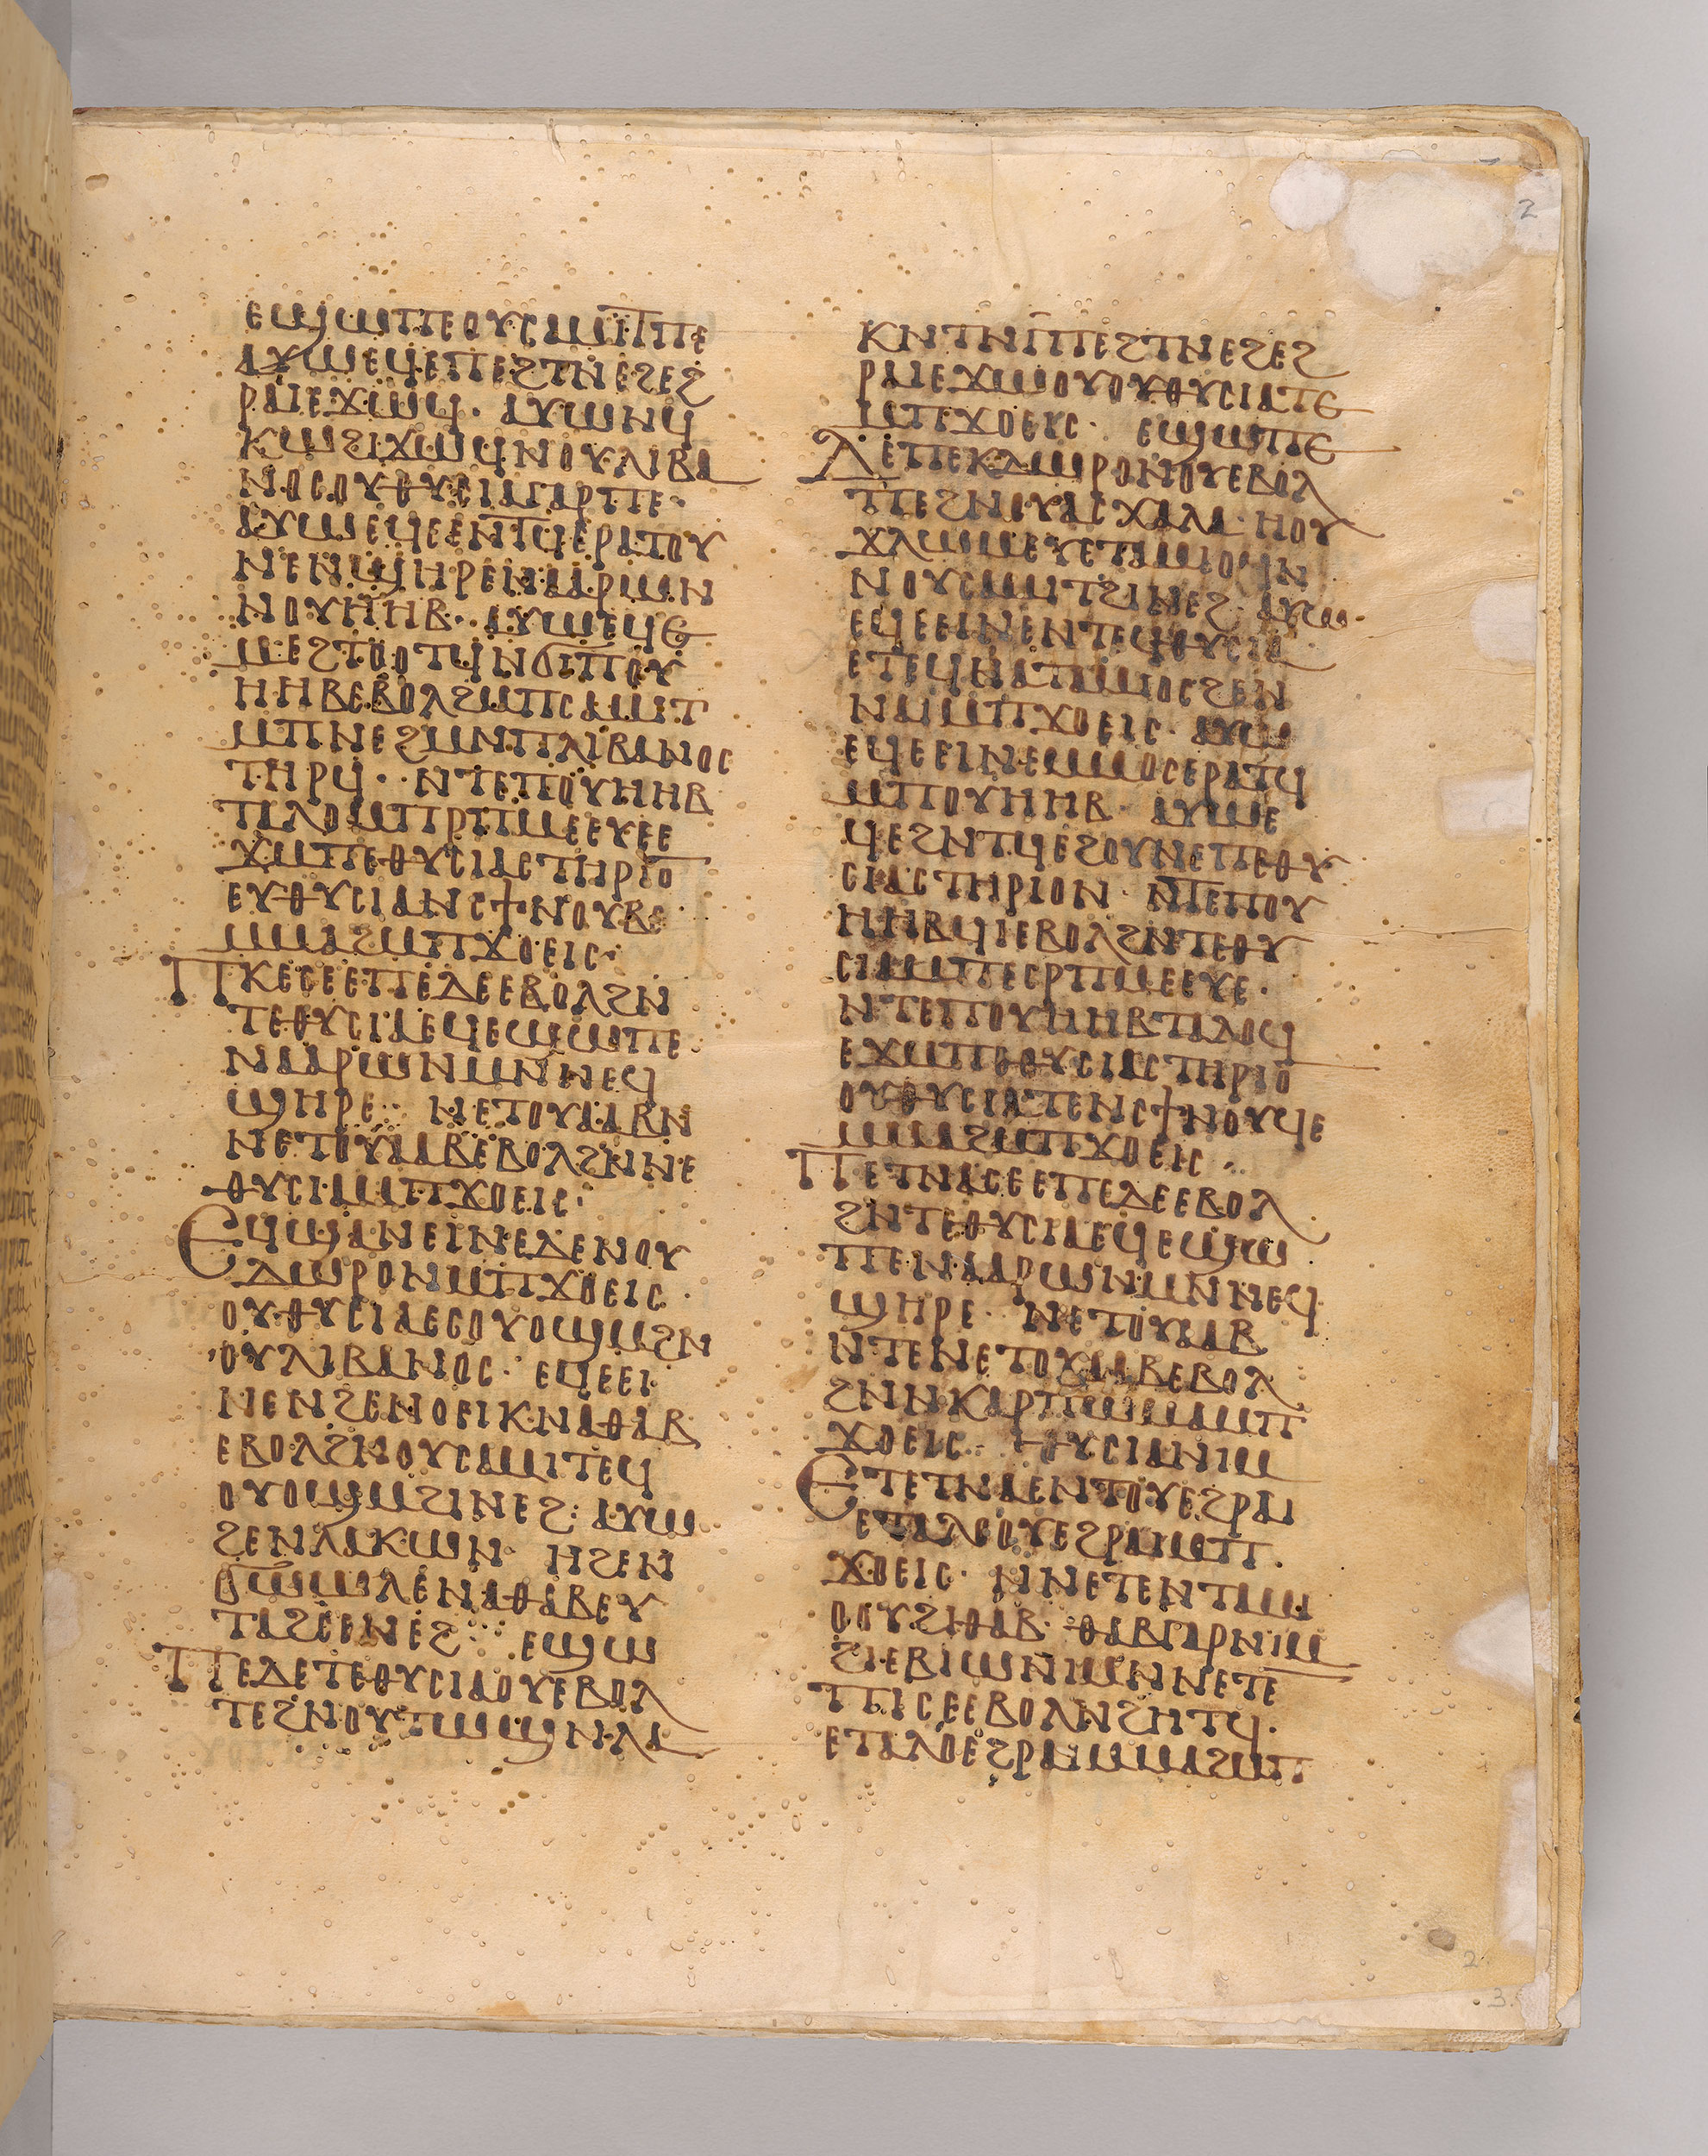 ⲉϣⲱⲡⲉⲟⲩⲥⲁⲙⲓⲧⲡⲉ
ⲁⲩⲱⲉϥⲉⲡⲉϩⲧⲛⲉϩⲉϩ
ⲣⲁⲓⲉϫⲱϥ· ⲁⲩⲱⲛϥ
ⲕⲱϩⲓϫⲱϥⲛⲟⲩⲗⲓⲃⲁ
ⲛⲟⲥⲟⲩⲑⲩⲥⲓⲁⲅⲁⲣⲡⲉ·
ⲁⲩⲱⲉϥⲉⲉⲛⲧϥⲉⲣⲁⲧⲟⲩ
ⲛⲉⲛϣⲏⲣⲉⲛⲁⲁⲣⲱⲛ
ⲛⲟⲩⲏⲏⲃ· ⲁⲩⲱⲉϥⲉ
ⲙⲉϩⲧⲟⲟⲧϥⲛϭⲓⲡⲟⲩ
ⲏⲏⲃⲉⲃⲟⲗϩⲙⲡⲥⲁⲙⲓⲧ
ⲙⲡⲛⲉϩⲙⲛⲡⲗⲓⲃⲁⲛⲟⲥ
ⲧⲏⲣϥ· ⲛⲧⲉⲡⲟⲩⲏⲏⲃ
ⲧⲁⲗⲟⲙⲡⲣⲡⲙⲉⲉⲩⲉⲉ
ϫⲙⲡⲉⲑⲩⲥⲓⲁⲥⲧⲏⲣⲓⲟ̅
ⲉⲩⲑⲩⲥⲓⲁⲛⲥϯⲛⲟⲩⲃⲉ
ⲙⲙⲁϩⲙⲡϫⲟⲉⲓⲥ·
ⲡⲕⲉⲥⲉⲉⲡⲉⲇⲉⲉⲃⲟⲗϩⲛ
ⲧⲉⲑⲩⲥⲓⲁⲉϥⲉϣⲱⲡⲉ
ⲛⲁⲁⲣⲱⲛⲙⲛⲛⲉϥ
ϣⲏⲣⲉ· ⲛⲉⲧⲟⲩⲁⲁⲃⲛ
ⲛⲉⲧⲟⲩⲁⲁⲃⲉⲃⲟⲗϩⲛⲛⲉ
ⲑⲩⲥⲓⲁⲙⲡϫⲟⲉⲓⲥ·
ⲉϥϣⲁⲛⲉⲓⲛⲉⲇⲉⲛⲟⲩ
ⲇⲱⲣⲟⲛⲙⲡϫⲟⲉⲓⲥ·
ⲟⲩⲑⲩⲥⲓⲁⲉⲥⲟⲩⲟϣⲙϩⲛ
ⲟⲩⲗⲓⲃⲁⲛⲟⲥ· ⲉϥⲉⲉⲓ
ⲛⲉⲛϩⲉⲛⲟⲉⲓⲕⲛⲁⲑⲁⲃ
ⲉⲃⲟⲗϩⲛⲟⲩⲥⲁⲙⲓⲧⲉϥ
ⲟⲩⲟϣⲙϩⲓⲛⲉϩ: ⲁⲩⲱ
ϩⲉⲛⲗⲁⲕⲱⲛ· ⲏϩⲉⲛ
ϭⲱⲱⲗⲉⲛⲁⲑⲁⲃⲉⲩ
ⲧⲁϩⲥⲉⲛⲉϩ: ⲉϣⲱ
ⲡⲉⲇⲉⲧⲉⲑⲩⲥⲓⲁⲟⲩⲉⲃⲟⲗ
ⲧⲉϩⲛⲟⲩⲧⲱϣⲛⲗⲁ
ⲕⲛⲧⲛⲡⲉϩⲧⲛⲉϩⲉϩ
ⲣⲁⲓⲉϫⲱⲟⲩⲟⲩⲑⲩⲥⲓⲁⲧⲉ
ⲙⲡϫⲟⲉⲓⲥ· ⲉϣⲱⲡⲉ
ⲇⲉⲡⲉⲕⲇⲱⲣⲟⲛⲟⲩⲉⲃⲟⲗ
ⲡⲉϩⲛⲟⲩⲉⲥⲭⲁⲣⲁ· ⲛⲟⲩ
ⲉⲩⲉⲧⲁⲙⲓⲟϥⲛ
ⲛⲟⲩⲥⲁⲙⲓⲧϩⲓⲛⲉϩ· ⲁⲩⲱ·
ⲉϥⲉⲉⲓⲛⲉⲛⲧⲉϥⲑⲩⲥⲓⲁ
ⲉⲧⲉϥⲛⲁⲧⲁⲙⲓⲟⲥϩⲉⲛ
ⲛⲁⲓⲙⲡϫⲟⲉⲓⲥ· ⲁⲩⲱ
ⲉϥⲉⲉⲓⲛⲉⲙⲙⲟⲥⲉⲣⲁⲧϥ
ⲙⲡⲟⲩⲏⲏⲃ· ⲁⲩⲱⲉ
ϥⲉϩⲛⲧϥⲉϩⲟⲩⲛⲉⲡⲉⲑⲩ
ⲥⲓⲁⲥⲧⲏⲣⲓⲟⲛ· ⲛⲧⲉⲡⲟⲩ
ⲏⲏⲃϥⲓⲉⲃⲟⲗϩⲛⲧⲉⲑⲩ
ⲥⲓⲁⲙⲡⲉⲥⲣⲡⲙⲉⲉⲩⲉ·
ⲛⲧⲉⲡⲟⲩⲏⲏⲃⲧⲁⲗⲟϥ
ⲉϫⲙⲡⲉⲑⲩⲥⲓⲁⲥⲧⲏⲣⲓⲟ̅
ⲟⲩⲑⲩⲥⲓⲁⲧⲉⲛⲥϯⲛⲟⲩϥⲉ
ⲙⲙⲁϩⲙⲡϫⲟⲉⲓⲥ·
ⲡⲉⲧⲛⲁⲥⲉⲉⲡⲉⲇⲉⲉⲃⲟⲗ
ϩⲛⲧⲉⲑⲩⲥⲓⲁⲉϥⲉϣⲱ
ⲡⲉⲛⲁⲁⲣⲱⲛⲙⲛⲛⲉϥ
ϣⲏⲣⲉ· ⲛⲉⲧⲟⲩⲁⲁⲃ
ⲛⲧⲉⲛⲉⲧⲟⲩⲁⲁⲃⲉⲃⲟⲗ
ϩⲛⲛⲕⲁⲣⲡⲱⲙⲁⲙⲡ
ϫⲟⲉⲓⲥ· ⲑⲩⲥⲓⲁⲛⲓⲙ
ⲉⲧⲉⲧⲛⲁⲉⲛⲧⲟⲩⲉϩⲣⲁⲓ
ⲉⲧⲁⲗⲟⲟⲩⲉϩⲣⲁⲓⲙⲡ
ϫⲟⲉⲓⲥ· ⲛⲛⲉⲧⲉⲛⲧⲁⲙⲓ
ⲟⲟⲩϩⲓⲑⲁⲃ· ⲑⲁⲃⲅⲁⲣⲛⲓⲙ
ϩⲓⲉⲃⲓⲱⲛⲓⲙⲛⲛⲉⲧⲉ
ⲡⲓⲥⲉⲉⲃⲟⲗⲛϩⲏⲧϥ·
ⲉⲧⲁⲗⲟⲉϩⲣⲁⲓⲙⲙⲁϩⲙⲡ